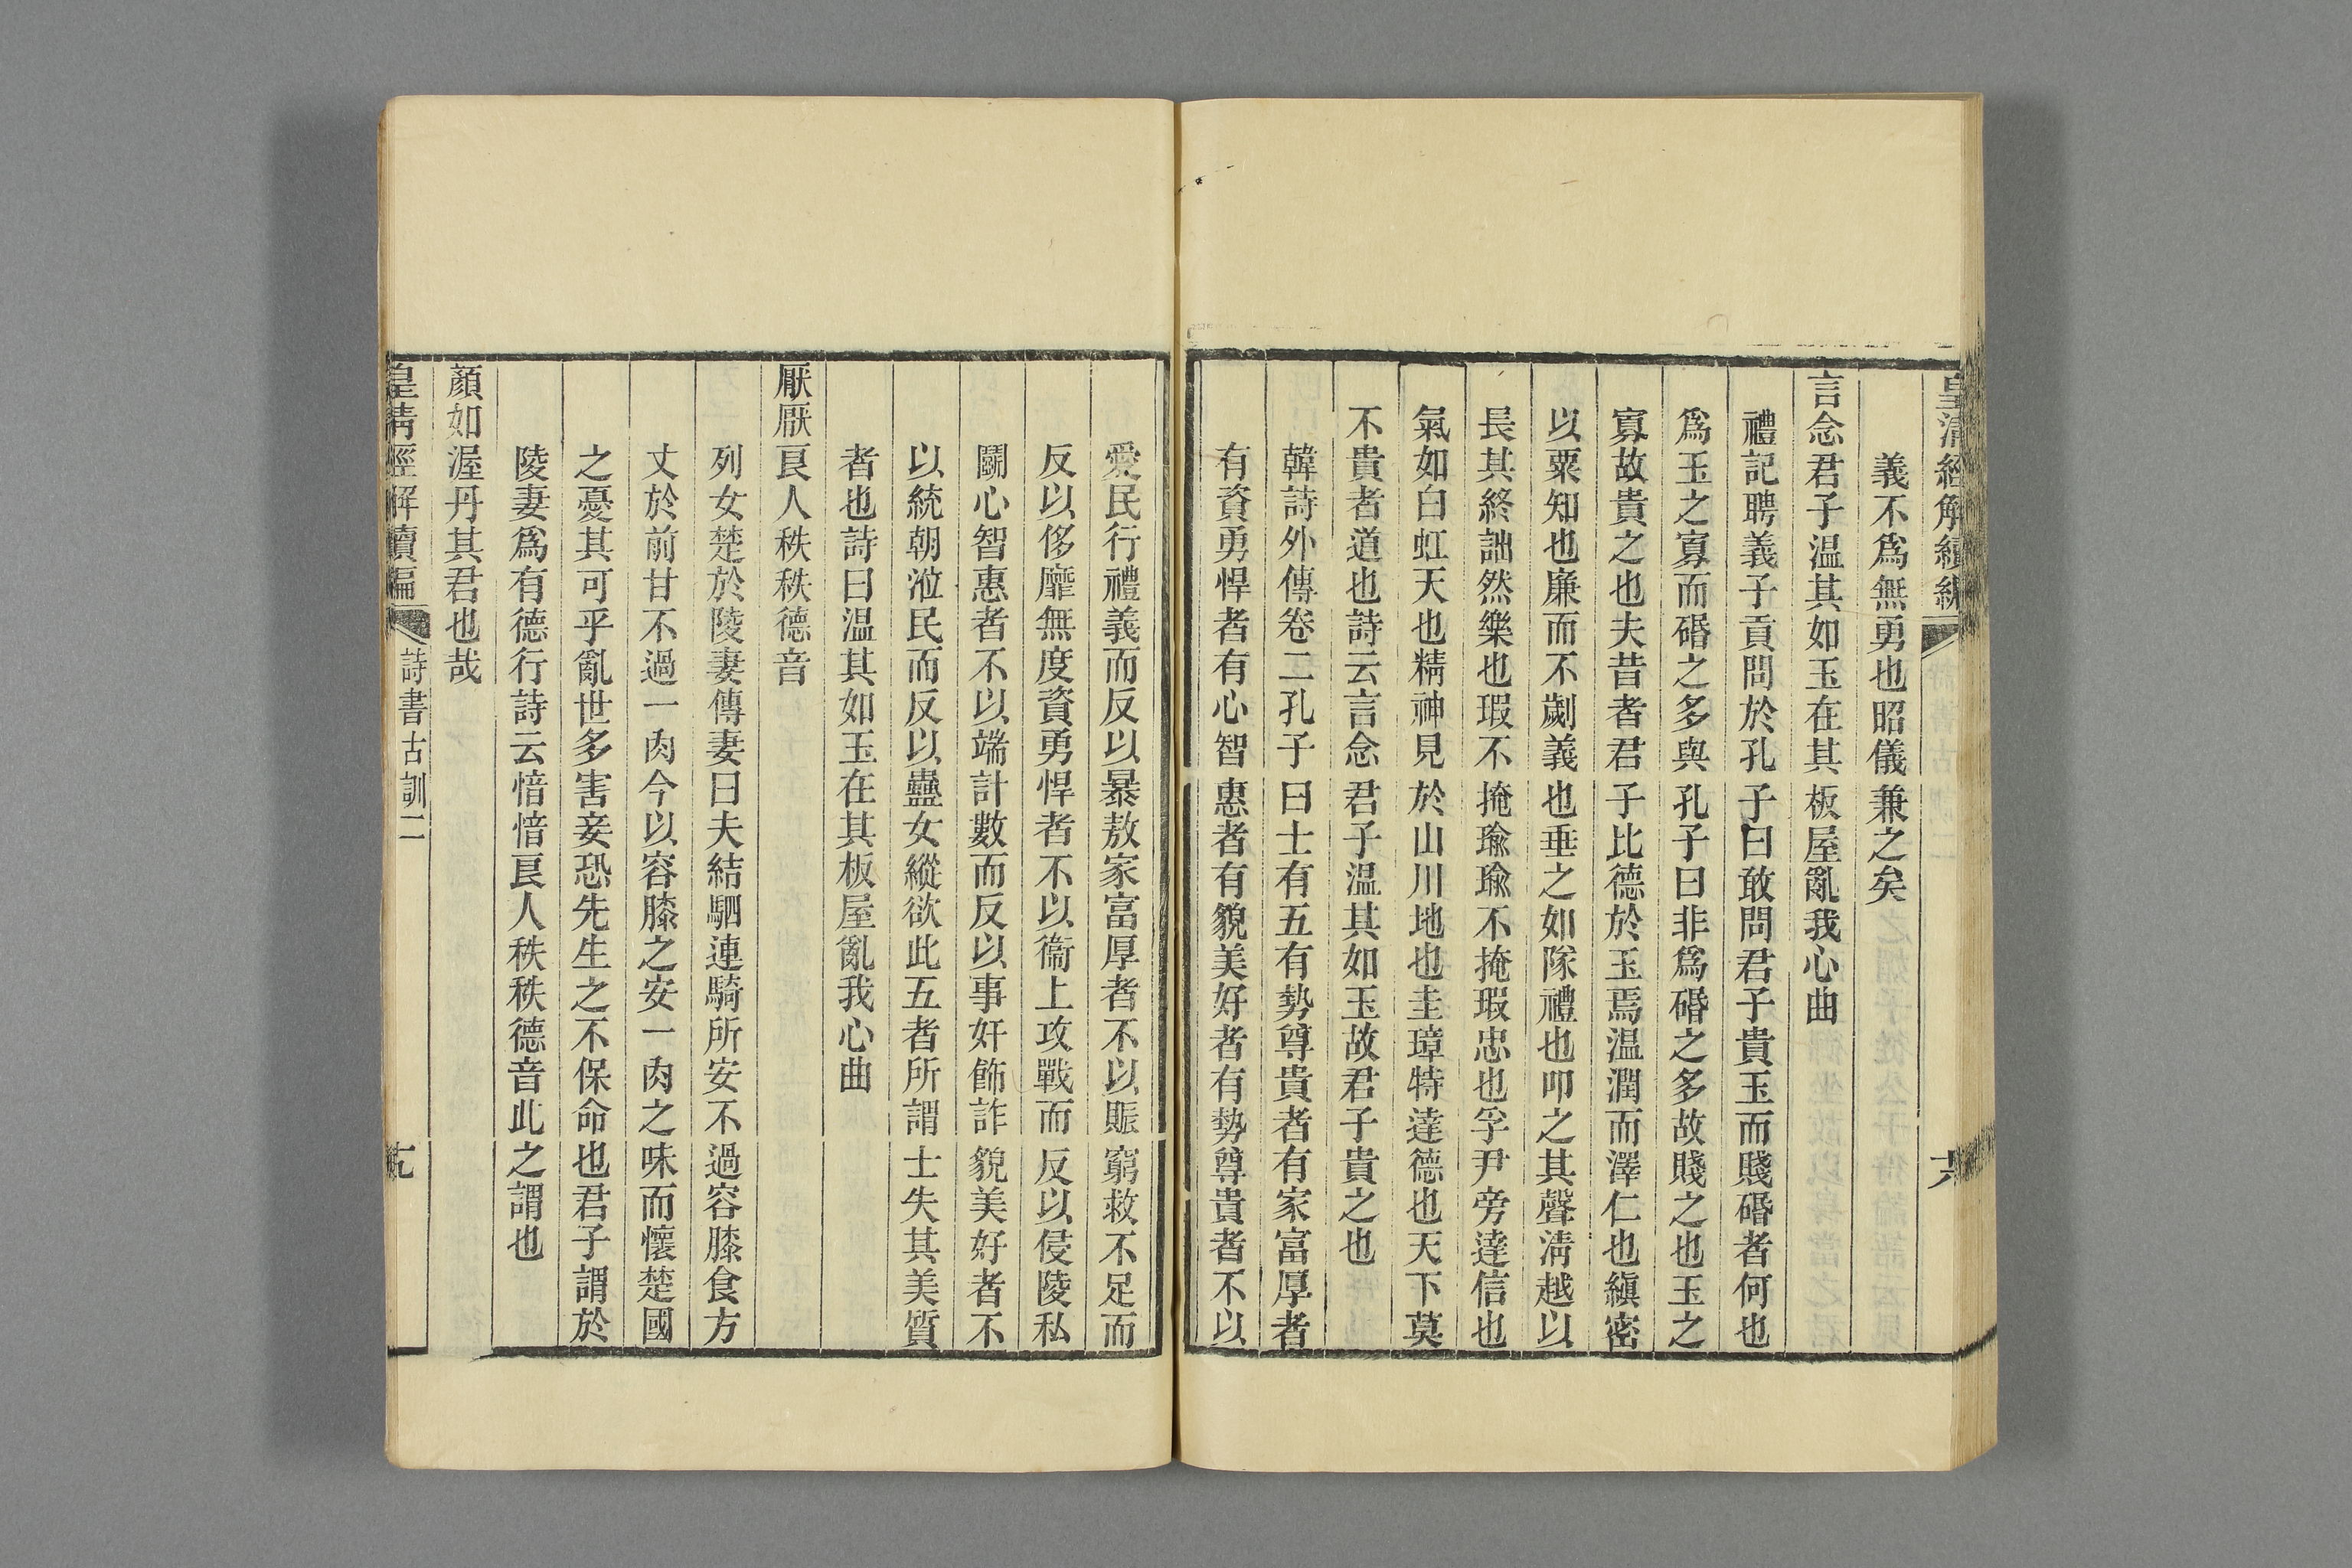 皇清經解續編
義不爲無勇也昭儀兼之矣
言念君子温其如玉在其板屋亂我心曲
禮記聘義子貢問於孔子曰敢問君子貴玉而賤碈者何也
爲玉之寡而碈之多與孔子曰非爲碈之多故賤之也玉之
寡故貴之也夫昔者君子比德於玉焉温潤而澤仁也縝密
以粟知也廉而不劌義也垂之如隊禮也叩之其聲清越以
長其終詘然樂也瑕不掩瑜瑜不掩瑕忠也孚尹旁達信也
氣如白虹天也精神見於山川地也圭璋特達德也天下莫
不貴者道也詩云言念君子温其如玉故君子貴之也
韓詩外傳卷二孔子曰士有五有勢尊貴者有家富厚者
有資勇悍者有心智惠者有貌美好者有勢尊貴者不以
愛民行禮義而反以暴敖家富厚者不以賑窮救不足而
反以侈靡無度資勇悍者不以衞上攻戰而反以侵陵私
鬬心智惠者不以端計數而反以事奸飾詐貌美好者不
以統朝涖民而反以蠱女縱欲此五者所謂士失其美質
者也詩曰温其如玉在其板屋亂我心曲
厭厭良人秩秩德音
列女楚於陵妻傳妻曰夫結駟連騎所安不過容膝食方
丈於前甘不過一肉今以容膝之安一肉之味而懷楚國
之憂其可乎亂世多害妾恐先生之不保命也君子謂於
陵妻爲有德行詩云愔愔良人秩秩德音此之謂也
顔如渥丹其君也哉
皇清經解續編 詩書古訓二